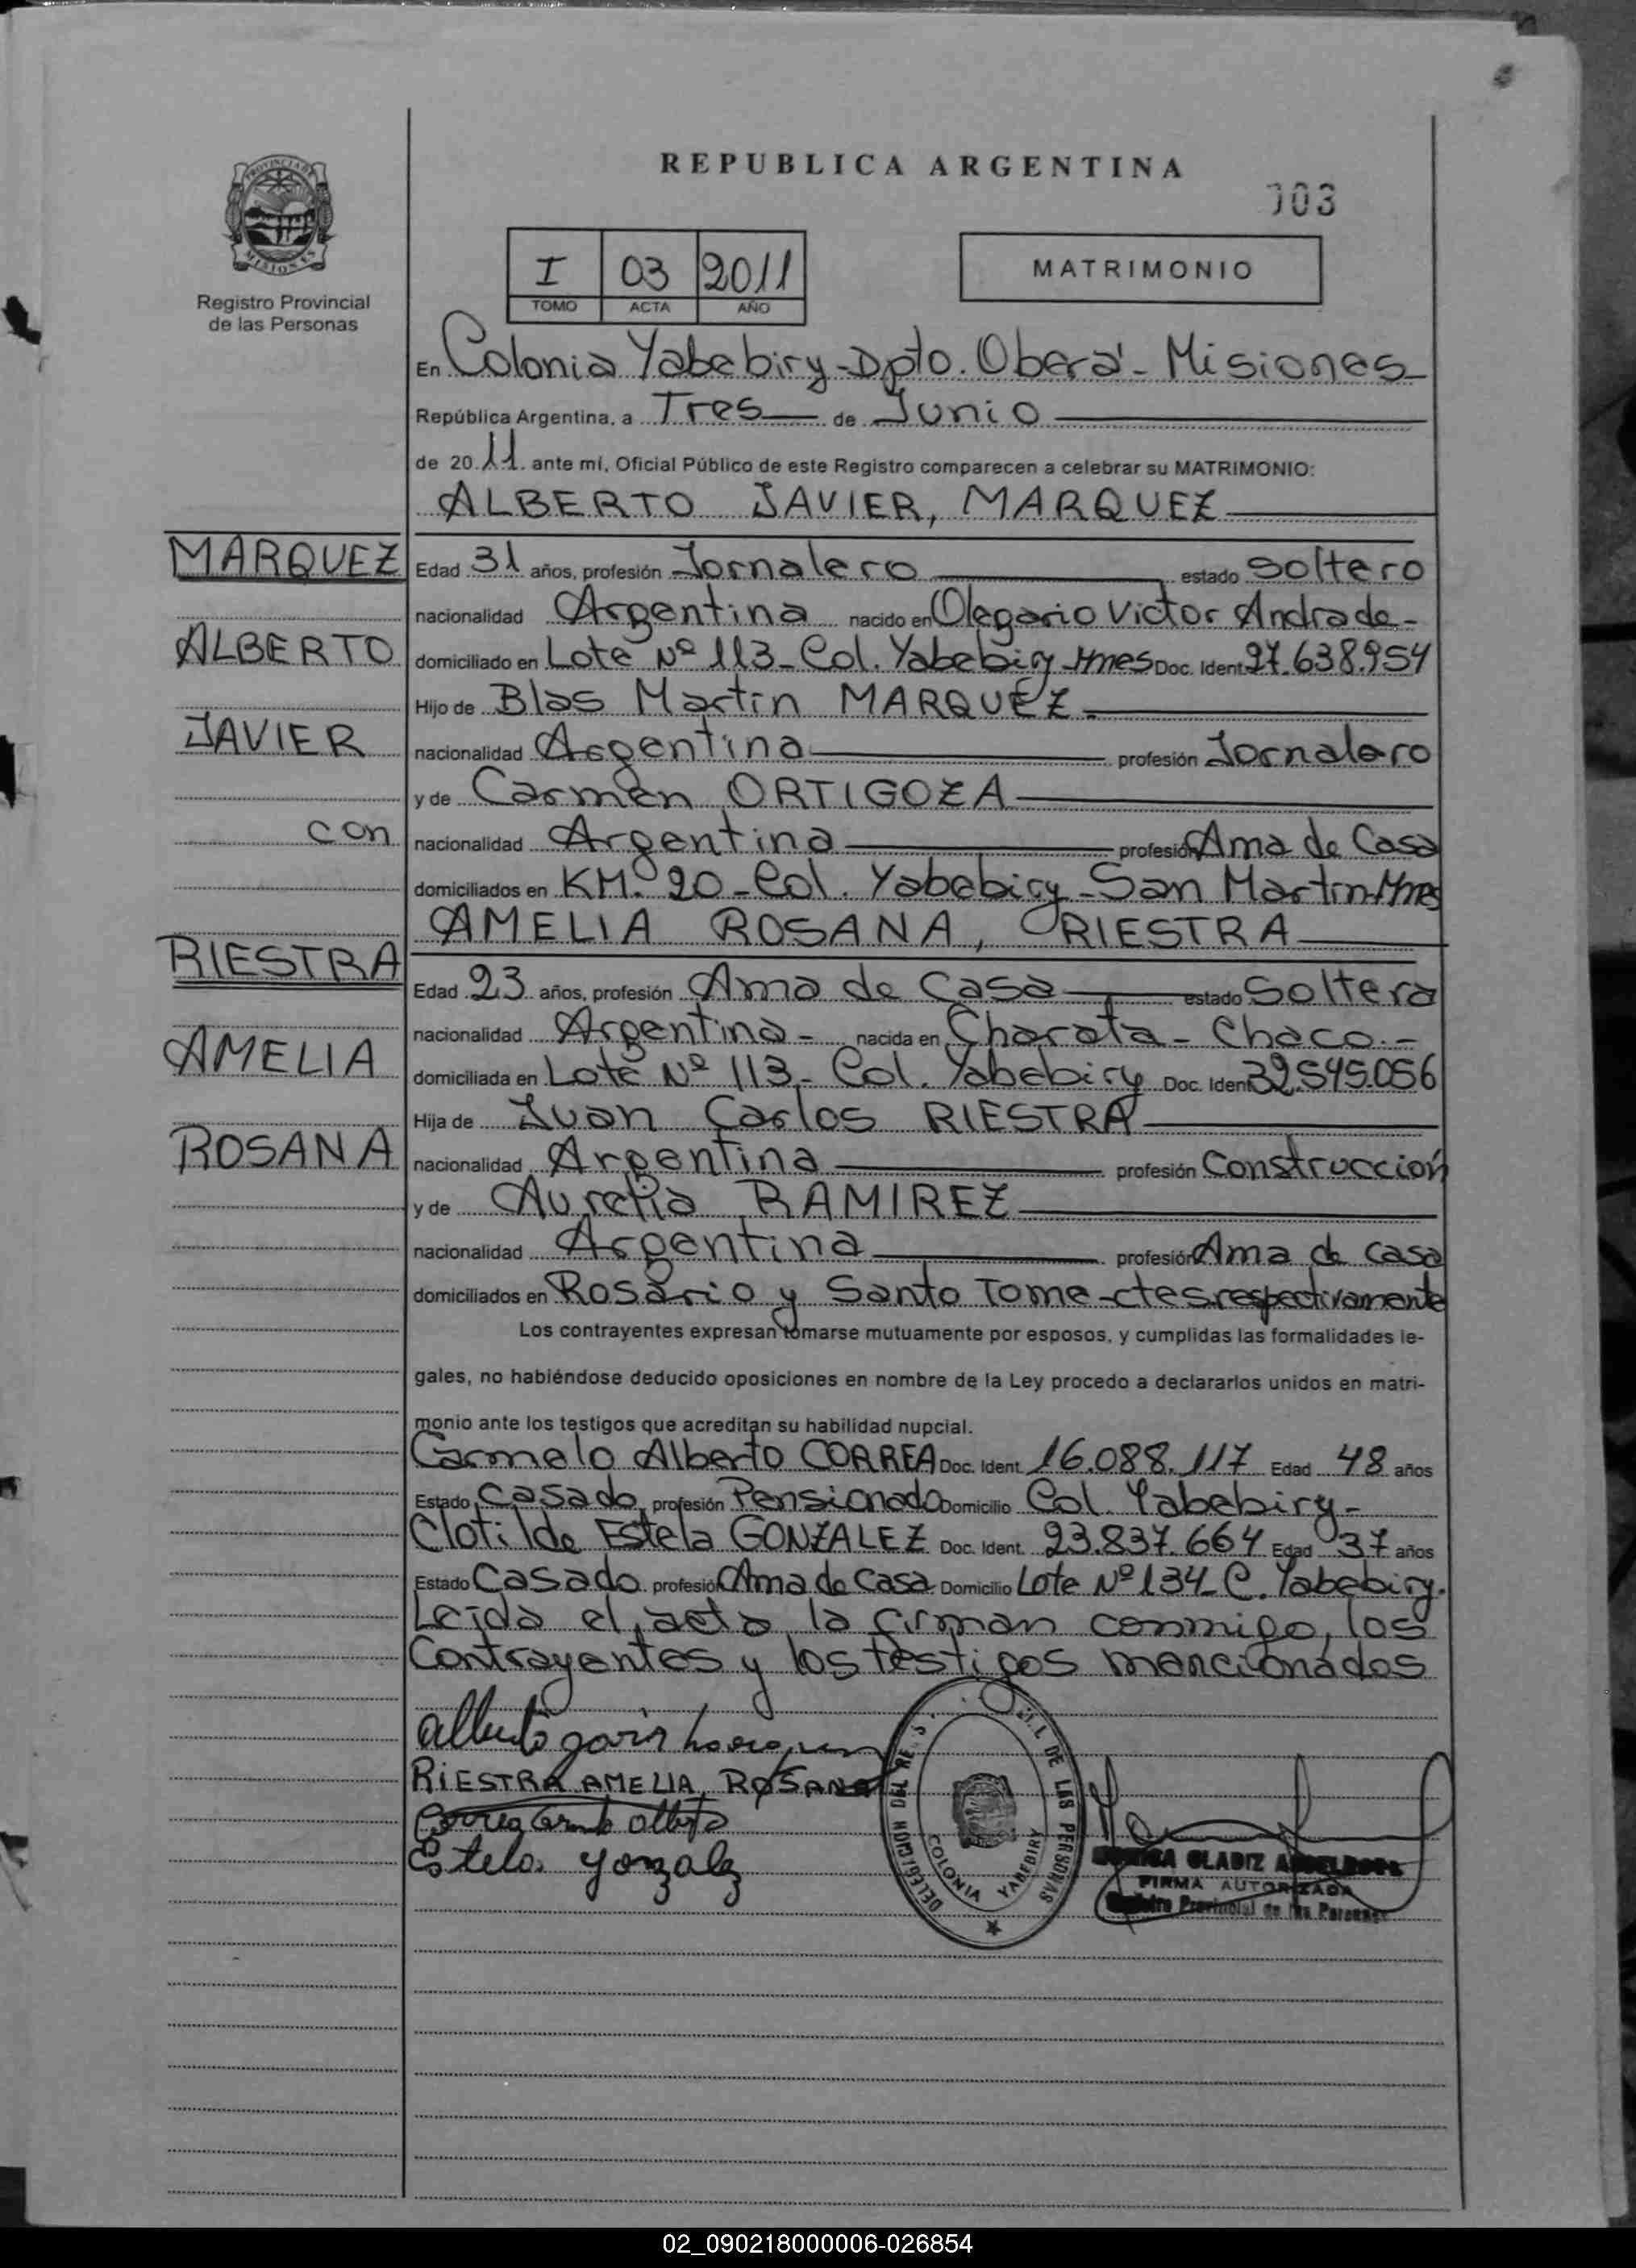 REPUBLICA ARGENTINA
003
PROVINCIA DE
MISIONES
Registro Provincial
de las Personas
I 03 2011
TOMO ACTA AÑO
MATRIMONIO
En Colonia Yabebiry-Dpto. Oberá - Misiones
República Argentina, a Tres de Junio
de 2011 ante mí, Oficial Público de este Registro comparecen a celebrar su MATRIMONIO:
ALBERTO JAVIER, MARQUEZ
MARQUEZ
ALBERTO
JAVIER
con
RIESTRA
AMELIA
ROSANA
Edad 31 años, profesión Jornalero estado Soltero
nacionalidad Argentina nacido en Olegario Victor Andrade-
domiciliado en Lote Nº 113- Col. Yabebiry Mnes Doc. Ident. 27.638.954
Hijo de Blas Martin MARQUEZ.
nacionalidad Argentina profesión Jornalero
y de Carmen ORTIGOZA
nacionalidad Argentina profesión Ama de Casa
domiciliados en KM. 20-Col. Yabebiry-San Martin-Mnes
AMELIA ROSANA, RIESTRA
Edad 23 años, profesión Ama de Casa estado Soltera
nacionalidad Argentina- nacida en Charata- Chaco.-
domiciliada en Lote Nº 113- Col. Yabebiry Doc. Ident. 32.545.056
Hija de Juan Carlos RIESTRA
nacionalidad Argentina profesión Construcción
y de Aurelia RAMIREZ
nacionalidad Argentina profesión Ama de Casa
domiciliados en Rosario y Santo Tome-ctes respectivamente
Los contrayentes expresan tomarse mutuamente por esposos, y cumplidas las formalidades le-
gales, no habiéndose deducido oposiciones en nombre de la Ley procedo a declararlos unidos en matri-
monio ante los testigos que acreditan su habilidad nupcial.
Carmelo Alberto CORREA Doc. Ident. 16.088.117 Edad 48 años
Estado Casado profesión Pensionado Domicilio Col. Yabebiry-
Clotilde Estela GONZALEZ Doc. Ident. 23.837.664 Edad 37 años
Estado Casado profesión Ama de Casa Domicilio Lote Nº 134-C. Yabebiry.
Leida el acta la firman conmigo, los
Contrayentes y los testigos mencionados
RIESTRA AMELIA, ROSANA
Correa alberto
Estela gonzalez
DELEGACION DEL DE LAS PERSONAS
COLONIA YABEBIRY
GLADIZ
FIRMA AUTORIZADA
Registro Provincial de las Personas
02_090218000006-026854